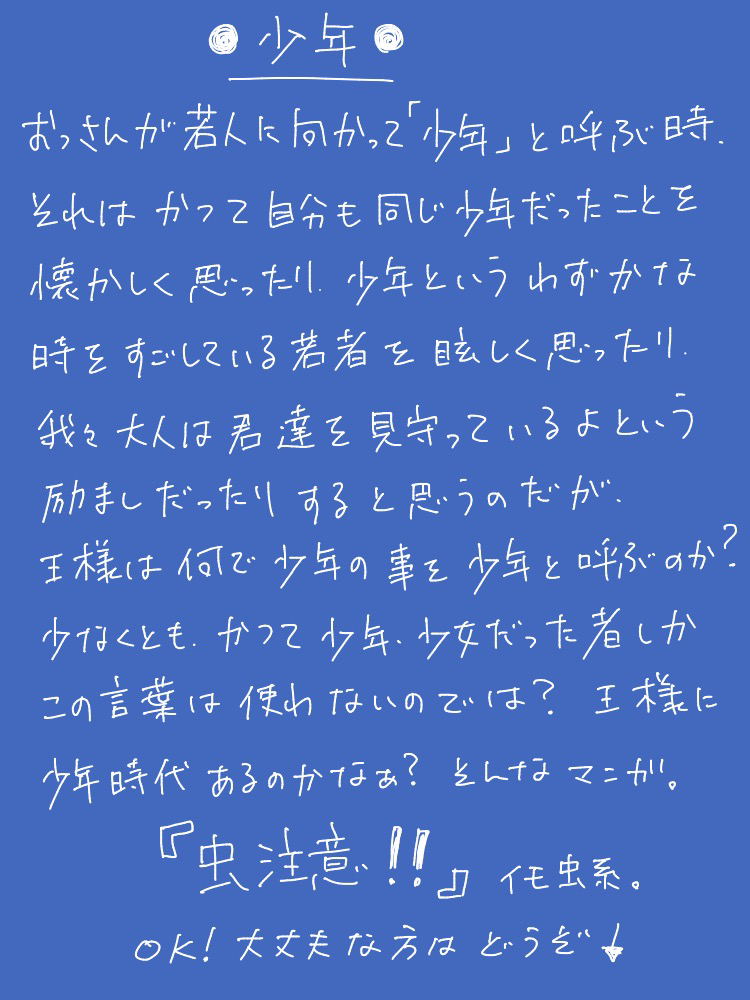 少年
おっさんが若人に向かって「少年」と呼ぶ時、
それはかつて自分も同じ少年だったことを
懐かしく思ったり、少年というわずかな
時をすごしている若者を眩しく思ったり、
我々大人は君達を見守っているよという
励ましだったりすると思うのだが、
王様は何で少年の事を少年と呼ぶのか?
少なくとも、かつて少年、少女だった者しか
この言葉は使わないのでは? 王様に
少年時代あるのかなぁ? そんなマニが。
『虫注意!!』イモ虫系。
OK! 大丈夫な方はどうぞ↓